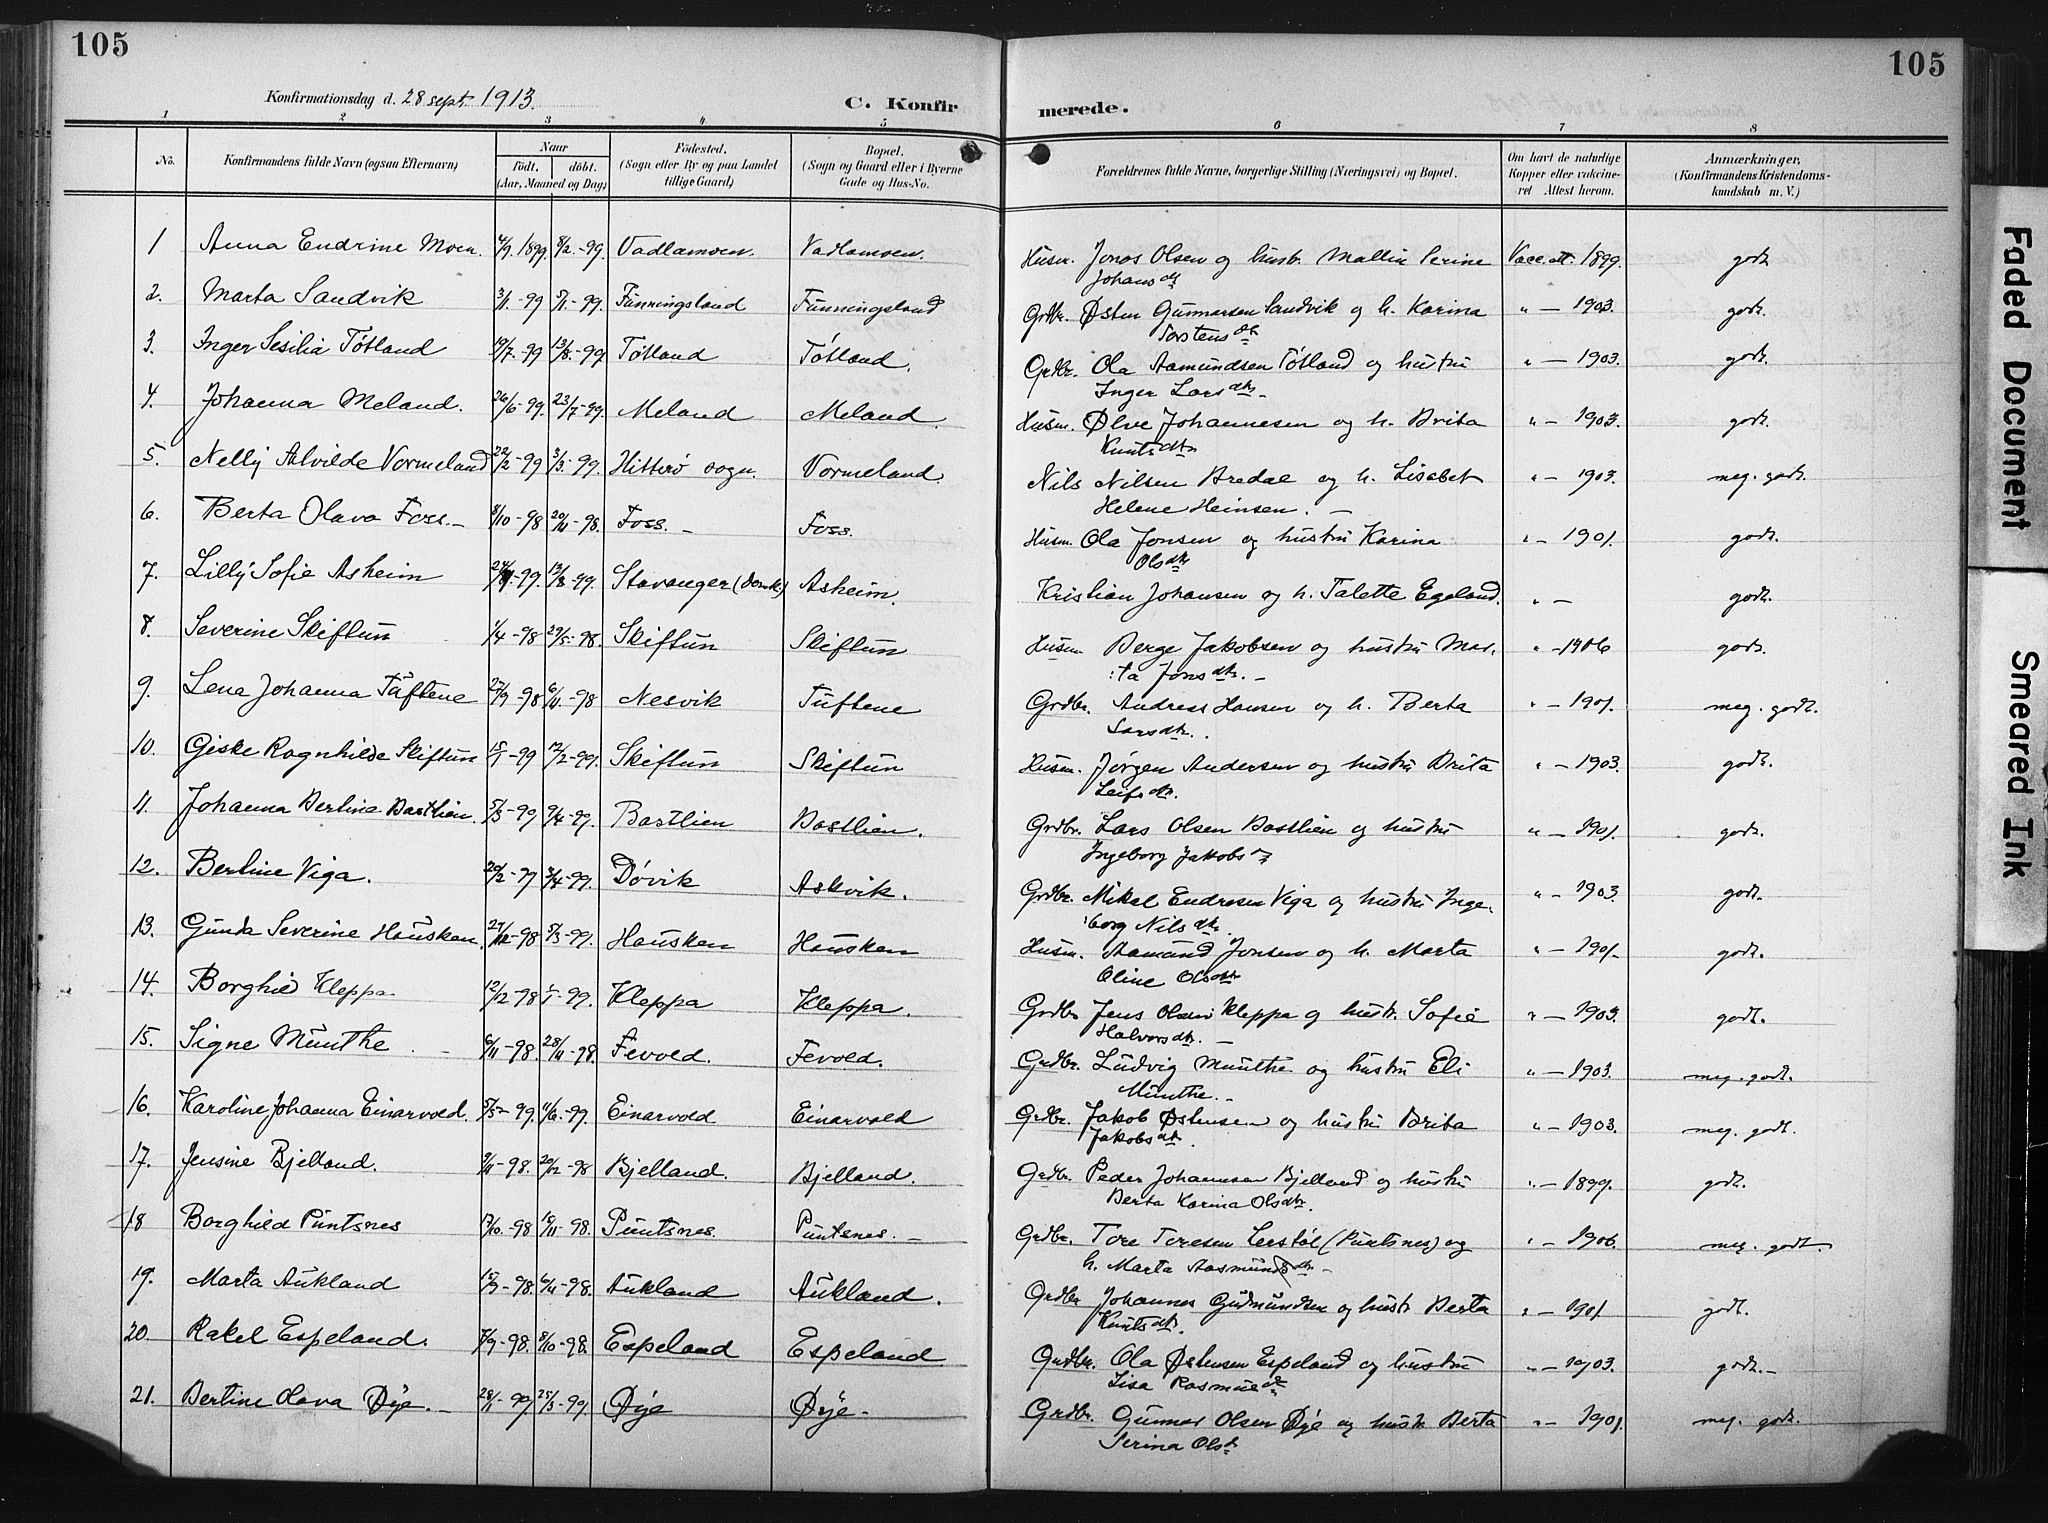 105
105
Konfirmationsdag d. 28 sept. 1913.
C. Konfirmerede.
1 2 3 4 5 6 7 8
No.
Konfirmandens fulde Navn (ogsaa Efternavn)
Naar
født. døbt.
(Aar, Maaned og Dag)
Fødested.
(Sogn eller By og paa Landet
tillige Gaard)
Bopæl.
(Sogn og Gaard eller i Byerne
Gade og Hus-No.
Forældrenes fulde Navne, borgerlige Stilling (Næringsvei) og Bopæl.
Om havt de naturlige
Kopper eller vakcine-
ret Attest herom.
Anmærkninger,
(Konfirmandens Kristendoms-
kundskab m. V.)
1 Anna Endrine Moen. 4/9 1899 8/2-99. Vadlamoen. Vadlamoen. Husm. Jonas Olsen og hustr. Mallin Serine Vacc. att. 1899. godt
Johansdt
2. Marta Sandvik 3/11-99 5/11-99. Funningsland Funningsland Grdbr. Østen Gunnarsen Sandvik og h. Karina " - 1903. godt.
Torstensdt
3. Inger Sesilia Tøtland 19/7-99 13/8-99 Tøtland Tøtland. Grdbr. Ola Aamundsen Tøtland og hustru " - 1903. godt.
Inger Larsdtr -
4. Johanna Meland. 26/6-99. 23/7-99. Meland Meland. Husm. Ølve Johannesen og h. Brita " - 1903. godt.
Knutsdtr
5. Nelly Alvilde Vormeland 22/2-99 3/3-99. Hitterø sogn. Vormeland. Nils Nilsen Bredal og h. Lisabet " - 1903. meg. godt.
Helene Heinsen. -
6. Berta Olava Foss. - 8/10-98 20/11-98. Foss. - Foss. Husm. Ola Jonsen og hustru Karina " - 1901. godt.
Olsdtr
7. Lilly Sofie Asheim -99. 13/8-99. Stavanger (Domk.) Asheim. Kristian Johansen og h. Talette Egeland. " - godt.
8. Severine Skiftun 1/4-98 29/5-98. Skiftun Skiftun Husm. Berge Jakobsen og hustru Mar- " -1906 godt.
:ta Jonsdtr. -
9. Lena Johanna Tuftene 27/9-98 6/11-98 Nesvik Tuftene Grdbr. Andreas Hansen og h. Berta " - 1901. meg. godt.
Larsdtr.
10. Giske Ragnhilde Skiftun 15/1-99 12/2-99. Skiftun Skiftun Husm. Jørgen Andersen og hustru Brita " - 1903. godt.
Leifsdtr.
11. Johanna Bertine Bastlien. 5/3-99 9/4-99. Bastlien Bastlien. Grdbr. Lars Olsen Bastlien og hustru " - 1901. godt.
Ingeborg Jakobsdt
12. Bertine Viga. 20/2-99 3/4-99. Døvik Askvik. Grdbr. Mikal Endresen Viga og hustru Inge- " - 1903. godt.
:borg Nilsdtr.
13. Gunda Severine Hausken. 27/12-98 5/3-99. Hausken Hausken Husm. Aamund Jonsen og h. Marta " - 1901. godt.
Oline Olsdatr
14. Borghild Kleppa 12/12-98 /1-99. Kleppa Kleppa. Grdbr Jens Olsen Kleppa og hustr. Sofie " - 1903. godt.
Halvorsdtr. -
15. Signe Munthe 6/11-98. 28/11-98. Fevold. Fevold. Grdbr. Ludvig Munthe og hustru Eli " - 1903. meg. godt.
Munthe. -
16. Karoline Johanna Einarvold. 5/5-99. 11/6-99. Einarvold Einarvold Grdbr. Jakob Østensen og hustru Brita " - 1903. meg. godt.
Jakobsdt.
17. Jensine Bjelland. 9/11-98. 29/12-98 Bjelland. Bjelland. Grdbr. Peder Johannsen Bjelland og hustru " - 1899. godt.
Berta Karina Olsdtr.
18 Borghild Puntsnes 17/10-98 10/11-98. Puntsnes. Puntsnes. - Grdbr. Tore Toresen Lerstøl (Puntsnes) og " - 1906. meg. godt.
h. Marta Aasmundsdtr. -
19. Marta Aukland 15/9-98. 6/11-98. Aukland Aukland. Grdbr Johannes Gudmundsen og hustr. Berta " - 1901. godt.
Knutsdt.
20. Rakel Espeland. 7/9-98. 8/10-98. Espeland Espeland Grdbr. Ola Østensen Espeland og hustru " - 1903. godt. -
Lisa Rasmusdt
21. Bertine Olava Øye. - 28/1-99. 25/3-99. Øye Øye - Grdbr. Gunnar Olsen Øye og hustr. Berta " - 1901. meg. godt.
Serina Olsdt
Faded Document
Smeared Ink